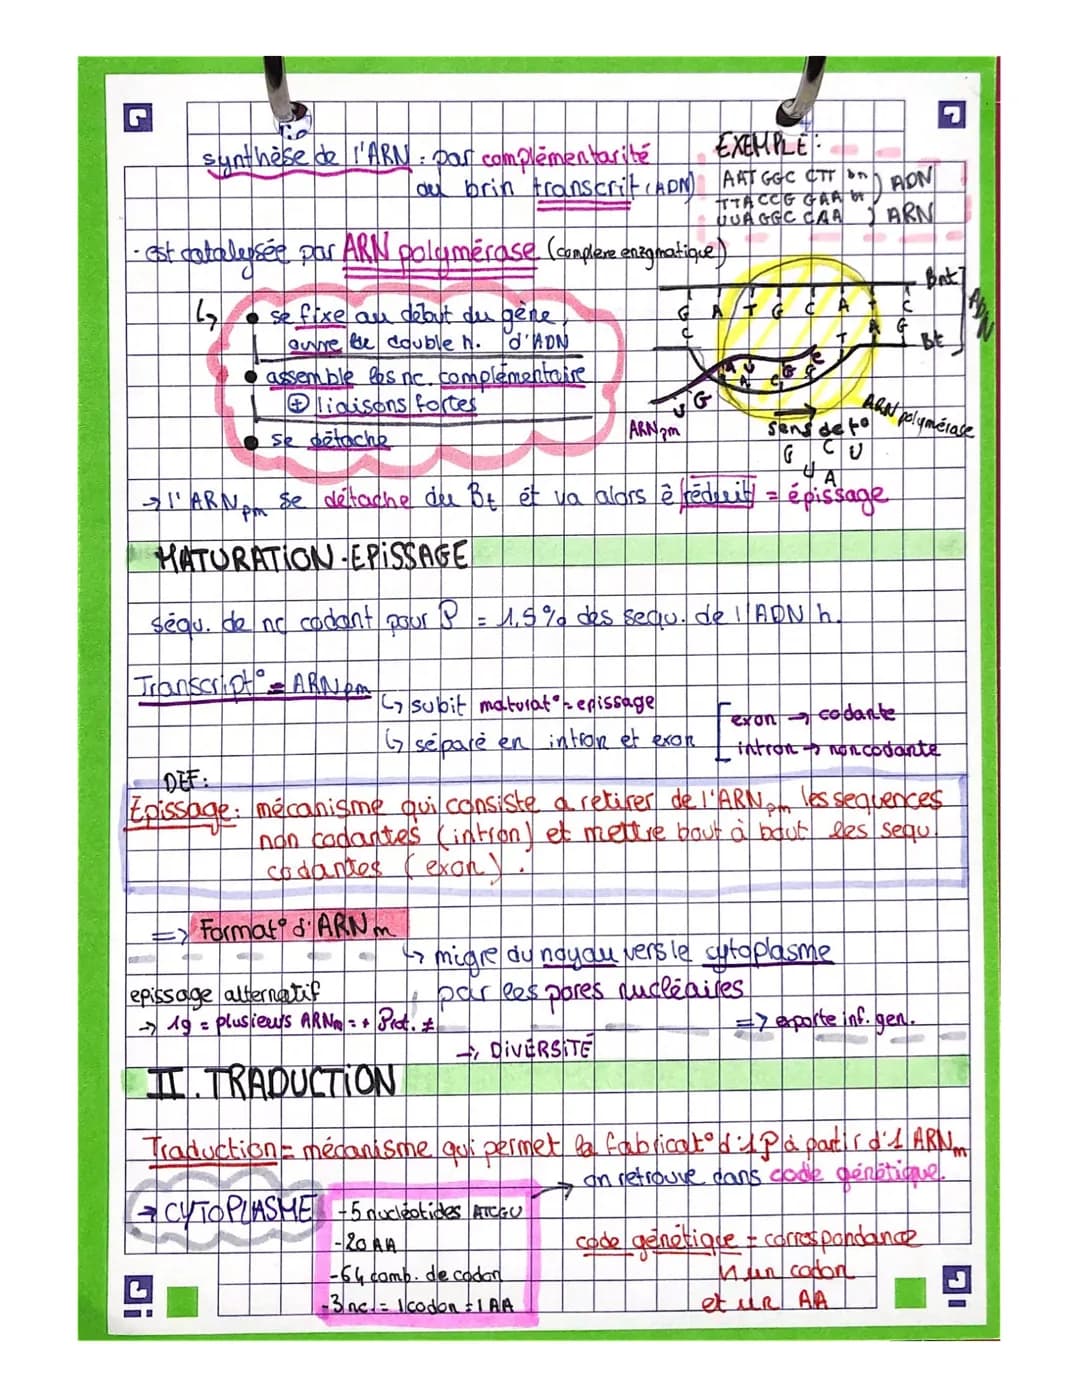 synthèse de l'ARN : par complémentarité
au brin transcrit (ADN)
EXEMPLE :
AAT GGC CTT bn ) ADN
TTACCG GAA bt
UUAGGC CAA } ARN
- est catalysée par ARN polymérase (complexe enzymatique)
↳ • se fixe au début du gène,
ouvre le double h. d'ADN
• assemble les nc. complémentaire
⊕ liaisons fortes
• se détache
Bnt
G A T G C A T C
C T A G
Bt
ADN
U G
ARNpm
ARN polymérase
sens de t°
G C U
U A
→ l'ARNpm se détache du Bt et va alors ê réduit = épissage
MATURATION-EPISSAGE
séqu. de nc codant pour P = 1,5% des sequ. de l'ADN h.
Transcript° = ARNpm
↳ subit maturat° = epissage
↳ séparé en intron et exon
exon → codante
intron → noncodante
DEF:
Epissage: mécanisme qui consiste a retirer de l'ARNpm les sequences
non codantes (intron) et mettre bout à bout les sequ.
codantes (exon).
=> Format° d'ARNm
↳ migre du noyau vers le cytoplasme
par les pores nucléaires
epissage alternatif
→ 1g = plusieurs ARNm = + Prot. ≠
=> exporte inf. gen.
→ DIVERSITÉ
II. TRADUCTION
Traduction = mécanisme qui permet la fabricat° d'1P à partir d'1 ARNm
→ on retrouve dans code génétique.
→ CYTOPLASME
-5 nucléotides ATCGU
-20 AA
-64 comb. de codon
-3 nc. = 1codon = 1 AA
code génétique = correspondance
un codon
et un AA